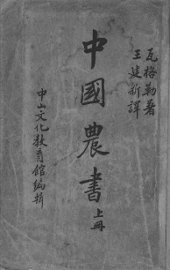 瓦格勒著
王建新譯
中國農書
上冊
中山文化教育館編輯